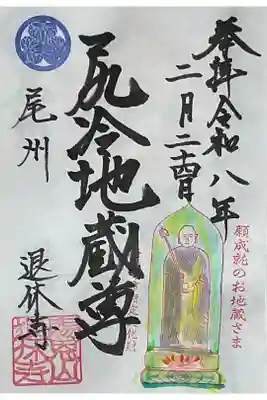 奉拝 令和八年
二月二十四日
願成就のお地蔵さま
尻冷地蔵尊
尾州
退休寺